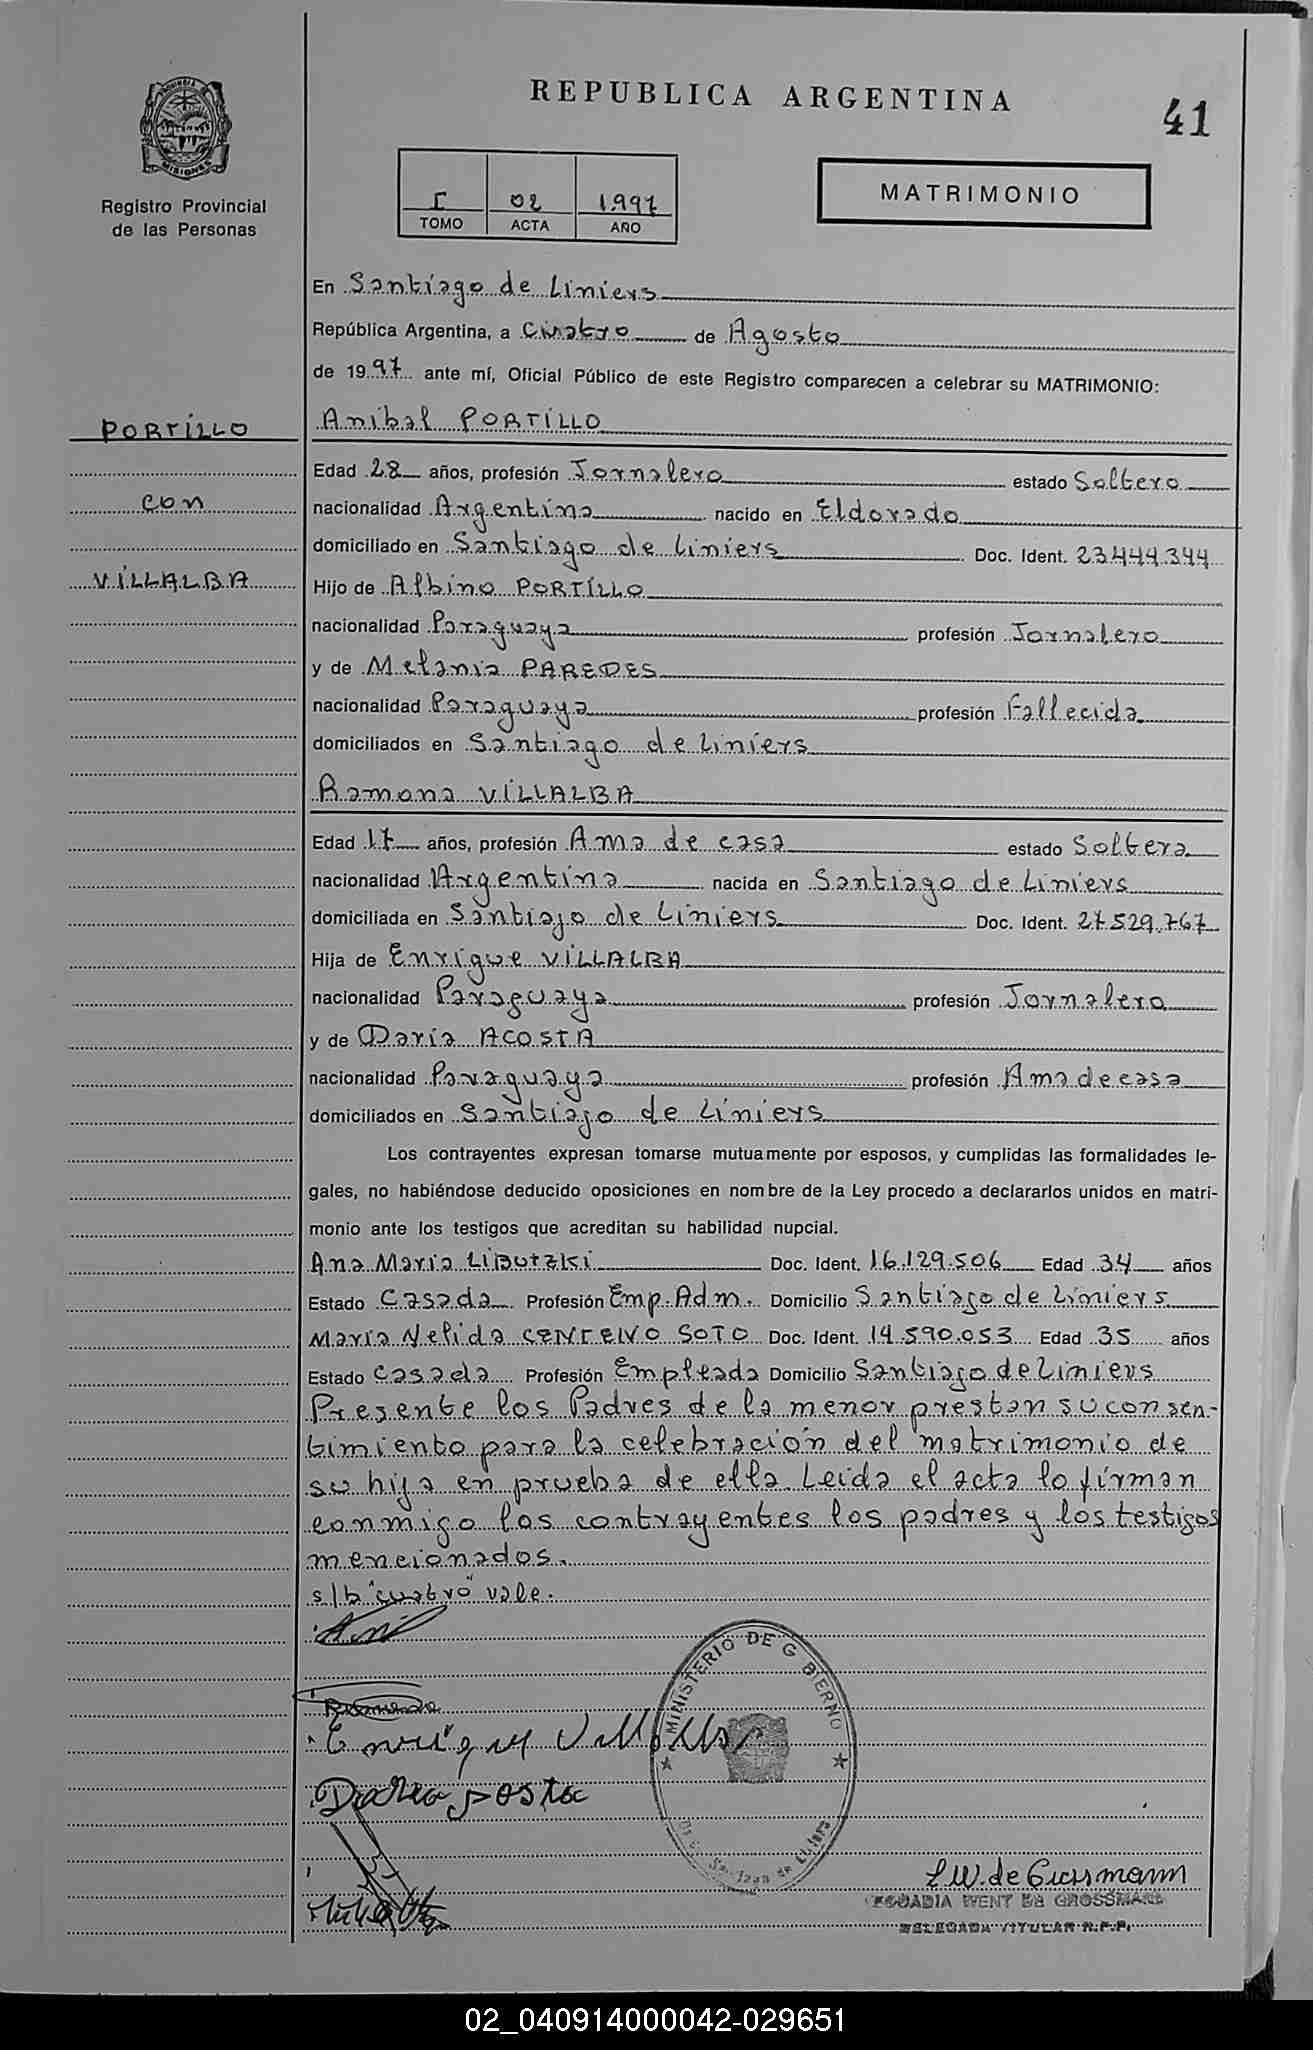 REPUBLICA ARGENTINA
41
PROVINCIA DE MISIONES
Registro Provincial
de las Personas
I 02 1.997
TOMO ACTA AÑO
MATRIMONIO
En Santiago de Liniers
República Argentina, a Cuatro de Agosto
de 19 97 ante mí, Oficial Público de este Registro comparecen a celebrar su MATRIMONIO:
PORTILLO
con
VILLALBA
Anibal PORTILLO
Edad 28 años, profesión Jornalero estado Soltero
nacionalidad Argentina nacido en Eldorado
domiciliado en Santiago de Liniers Doc. Ident. 23.444.344
Hijo de Albino PORTILLO
nacionalidad Paraguaya profesión Jornalero
y de Melania PAREDES
nacionalidad Paraguaya profesión Fallecida
domiciliados en Santiago de Liniers
Ramona VILLALBA
Edad 17 años, profesión Ama de casa estado Soltera
nacionalidad Argentina nacida en Santiago de Liniers
domiciliada en Santiago de Liniers Doc. Ident. 27.529.767
Hija de Enrique VILLALBA
nacionalidad Paraguaya profesión Jornalero
y de Daria ACOSTA
nacionalidad Paraguaya profesión Ama de casa
domiciliados en Santiago de Liniers
Los contrayentes expresan tomarse mutuamente por esposos, y cumplidas las formalidades le-
gales, no habiéndose deducido oposiciones en nombre de la Ley procedo a declararlos unidos en matri-
monio ante los testigos que acreditan su habilidad nupcial.
Ana Maria LIBUTZKI Doc. Ident. 16.129.506 Edad 34 años
Estado Casada Profesión Emp. Adm. Domicilio Santiago de Liniers
Maria Nelida CENTENO SOTO Doc. Ident. 14.590.053 Edad 35 años
Estado Casada Profesión Empleada Domicilio Santiago de Liniers
Presente los Padres de la menor prestan su consen-
timiento para la celebración del matrimonio de
su hija en prueba de ella. Leida el acta lo firman
conmigo los contrayentes los padres y los testigos
mencionados.
s/b "cuatro" vale.
Ramona
Enrique Villalba
MINISTERIO DE G BIERNO
Santiago de Liniers
L W. de Grossmann
LEOCADIA WENT DE GROSSMANN
DELEGADA TITULAR R.P.P.
02_040914000042-029651